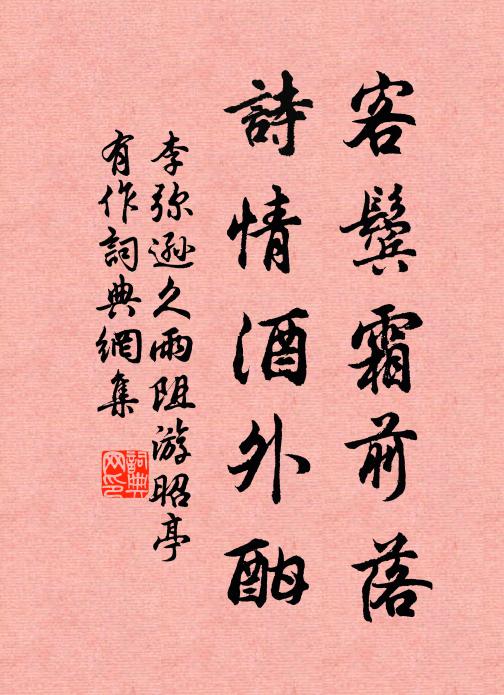 客鬢霜前落
詩情酒外酣
李弥遜久雨阻游昭亭
有作詞典網集
詞典
网印